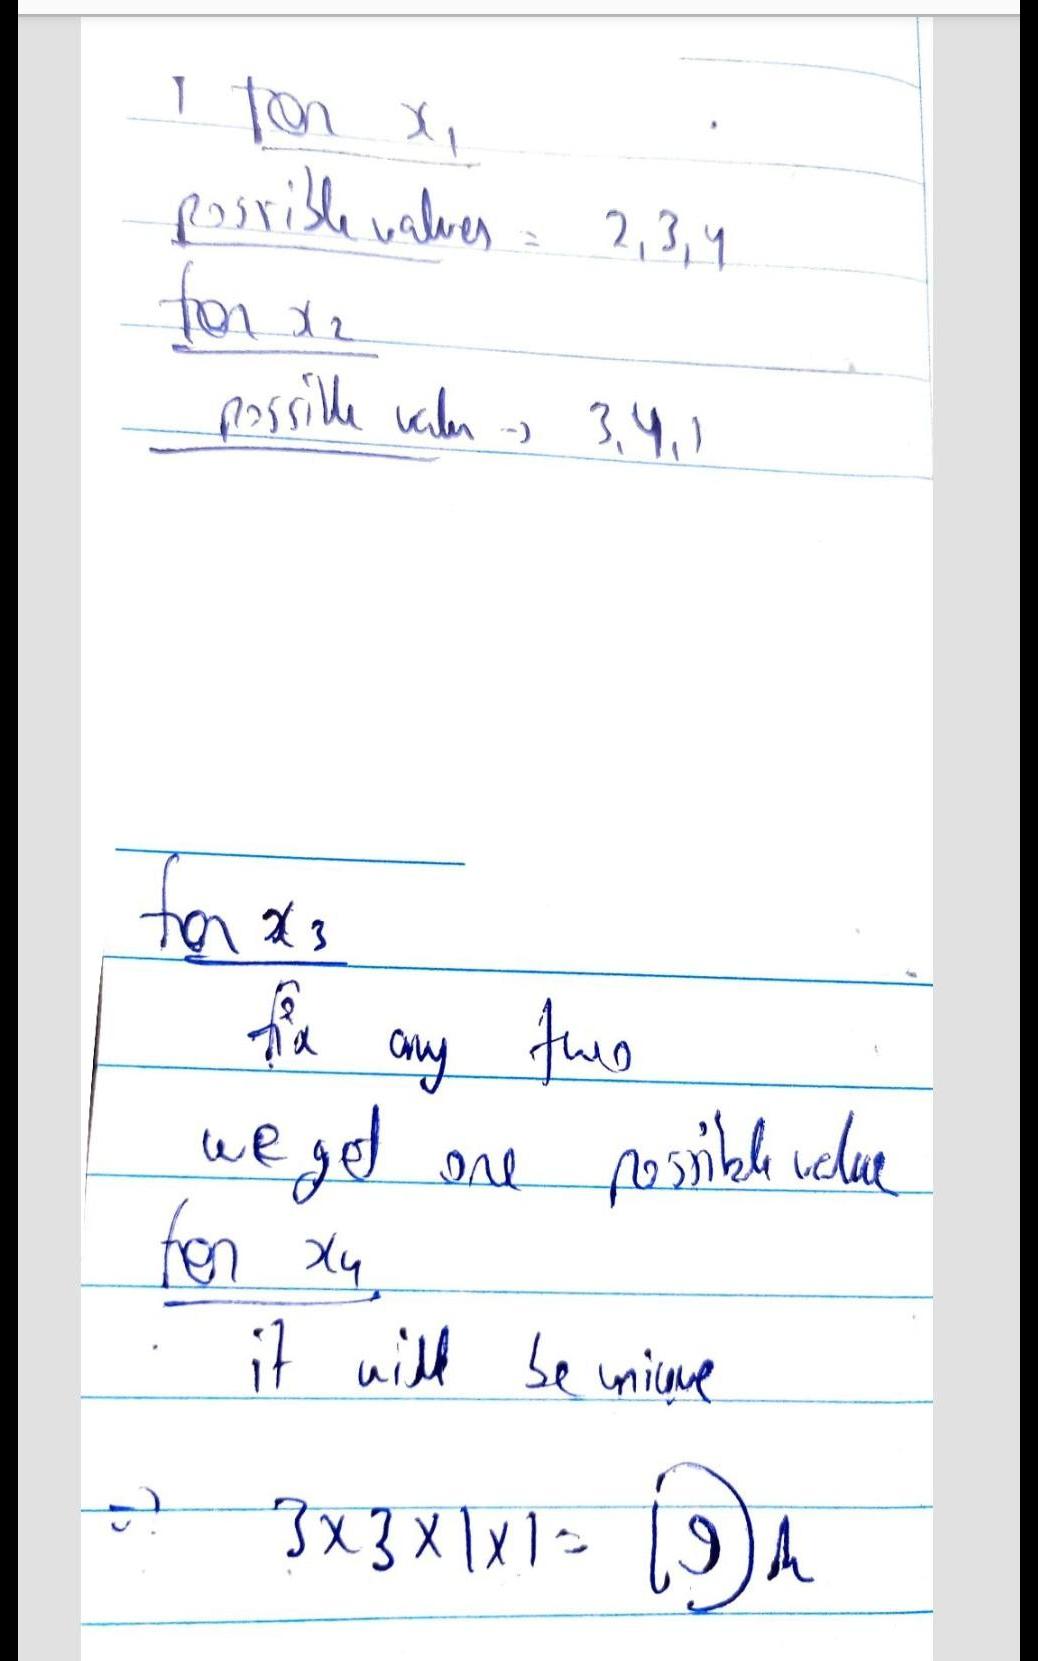 for x₁
possible values = 2,3,4
for x₂
possible value → 3,4,1
for x₃
fix any two
we get one possible value
for x₄
it will be unique
⇒ 3×3×1×1 = 9